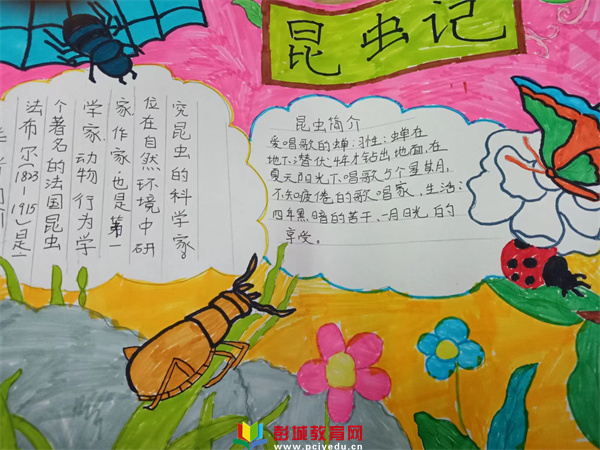 昆虫记
法布尔(1823-1915)是一
个著名的法国昆虫
学家,动物行为学
家,作家,也是第一
位在自然环境中研
究昆虫的科学家。
昆虫简介
爱唱歌的蝉:习性:蝉在
地下潜伏4年才钻出地面,在
夏天阳光下唱歌5个星期,
不知疲倦的歌唱家,生活:
四年黑暗的苦干,一月日光的
享受。
彭城教育网
www.pcjyedu.cn